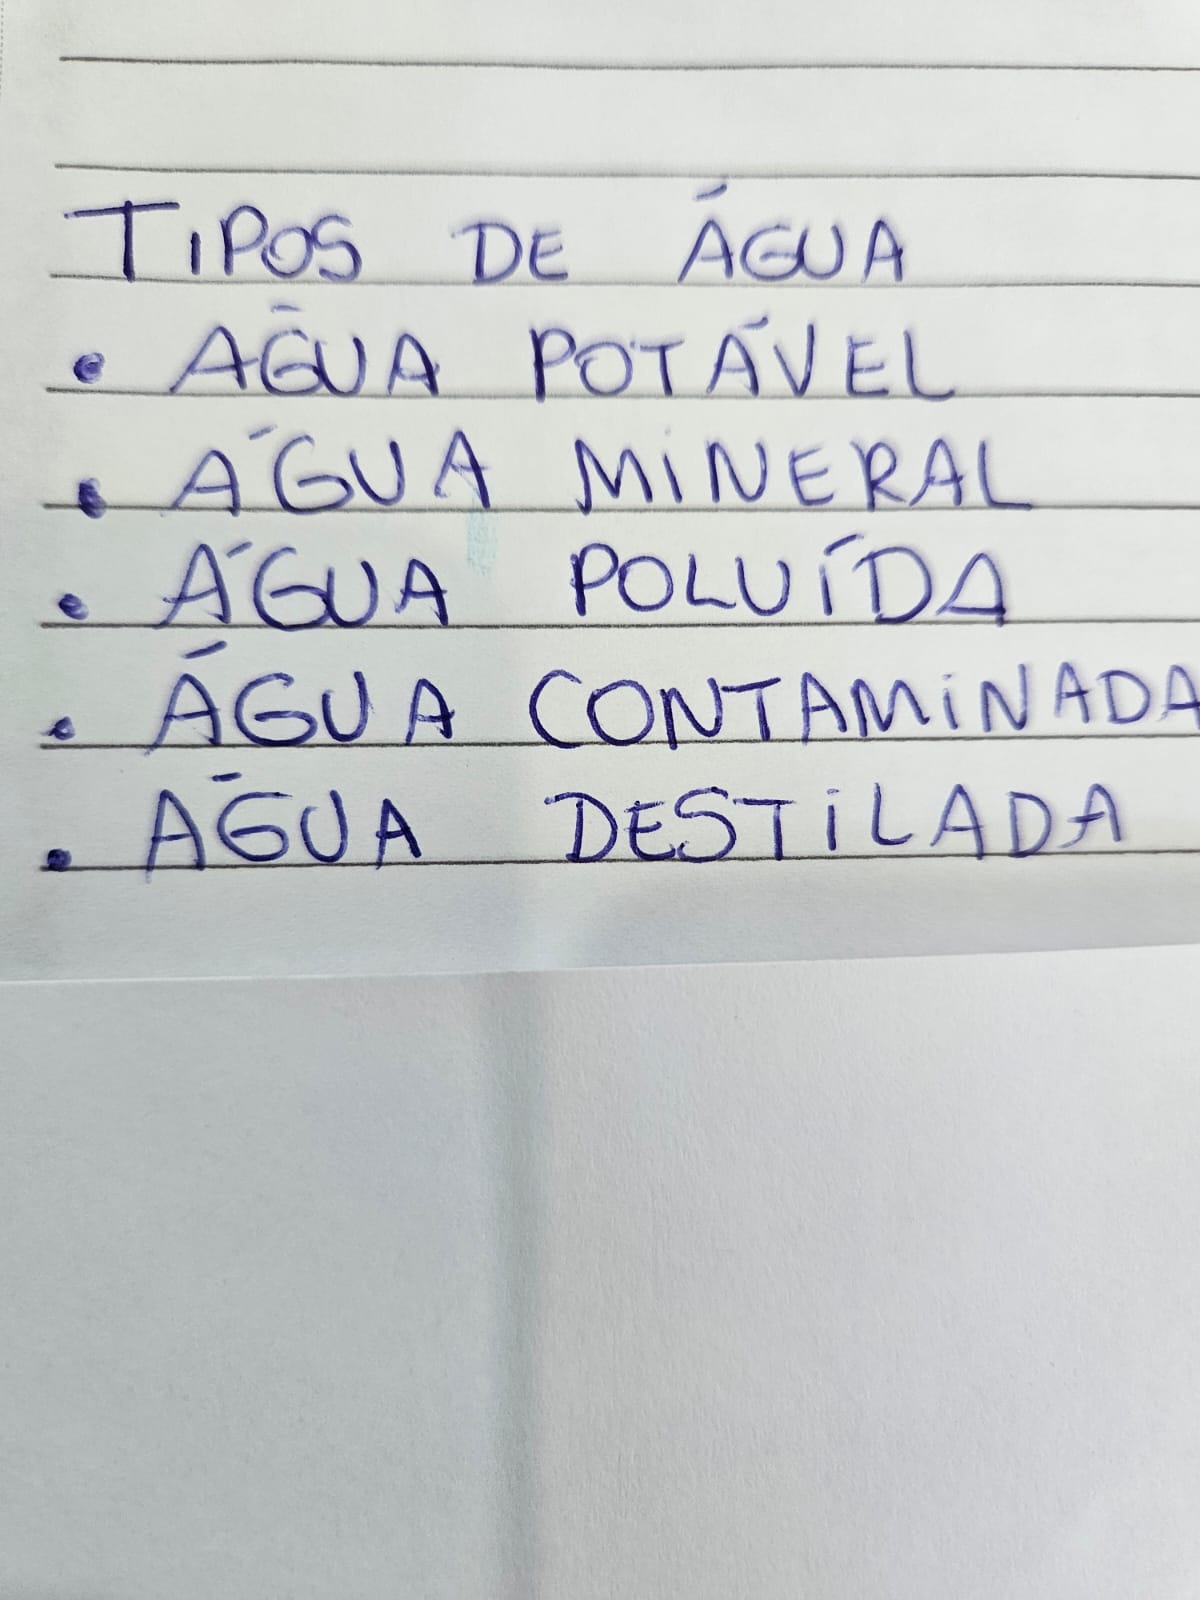 TIPOS DE ÁGUA
• ÁGUA POTÁVEL
• ÁGUA MINERAL
• ÁGUA POLUÍDA
• ÁGUA CONTAMINADA
• ÁGUA DESTILADA